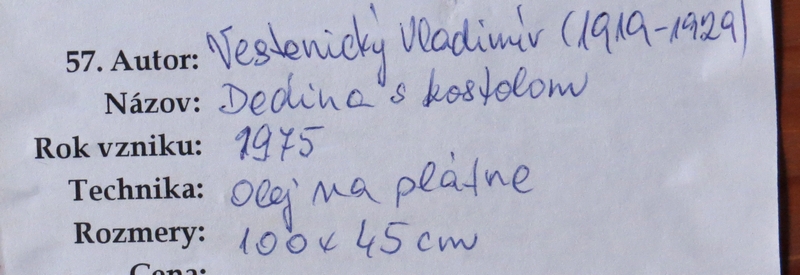 57. Autor: Vestenický Vladimír (1919-1929)
Názov: Dedina s kostolom
Rok vzniku: 1975
Technika: Olej na plátne
Rozmery: 100 x 45 cm
Cena: